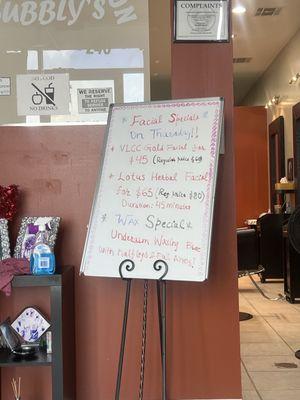 BUBBLY'S
ON
COMPLAINTS
NO
WE RESERVE
THE RIGHT
TO REFUSE
* Facial Specials *
on Thursday!!
* VLCC Gold Facial for
$45 (Regular price $60)
* Lotus Herbal Facial
for $65 (Reg Price $80)
Duration: 45 minutes
* Wax Special *
Underarm Waxing Free
with half legs &